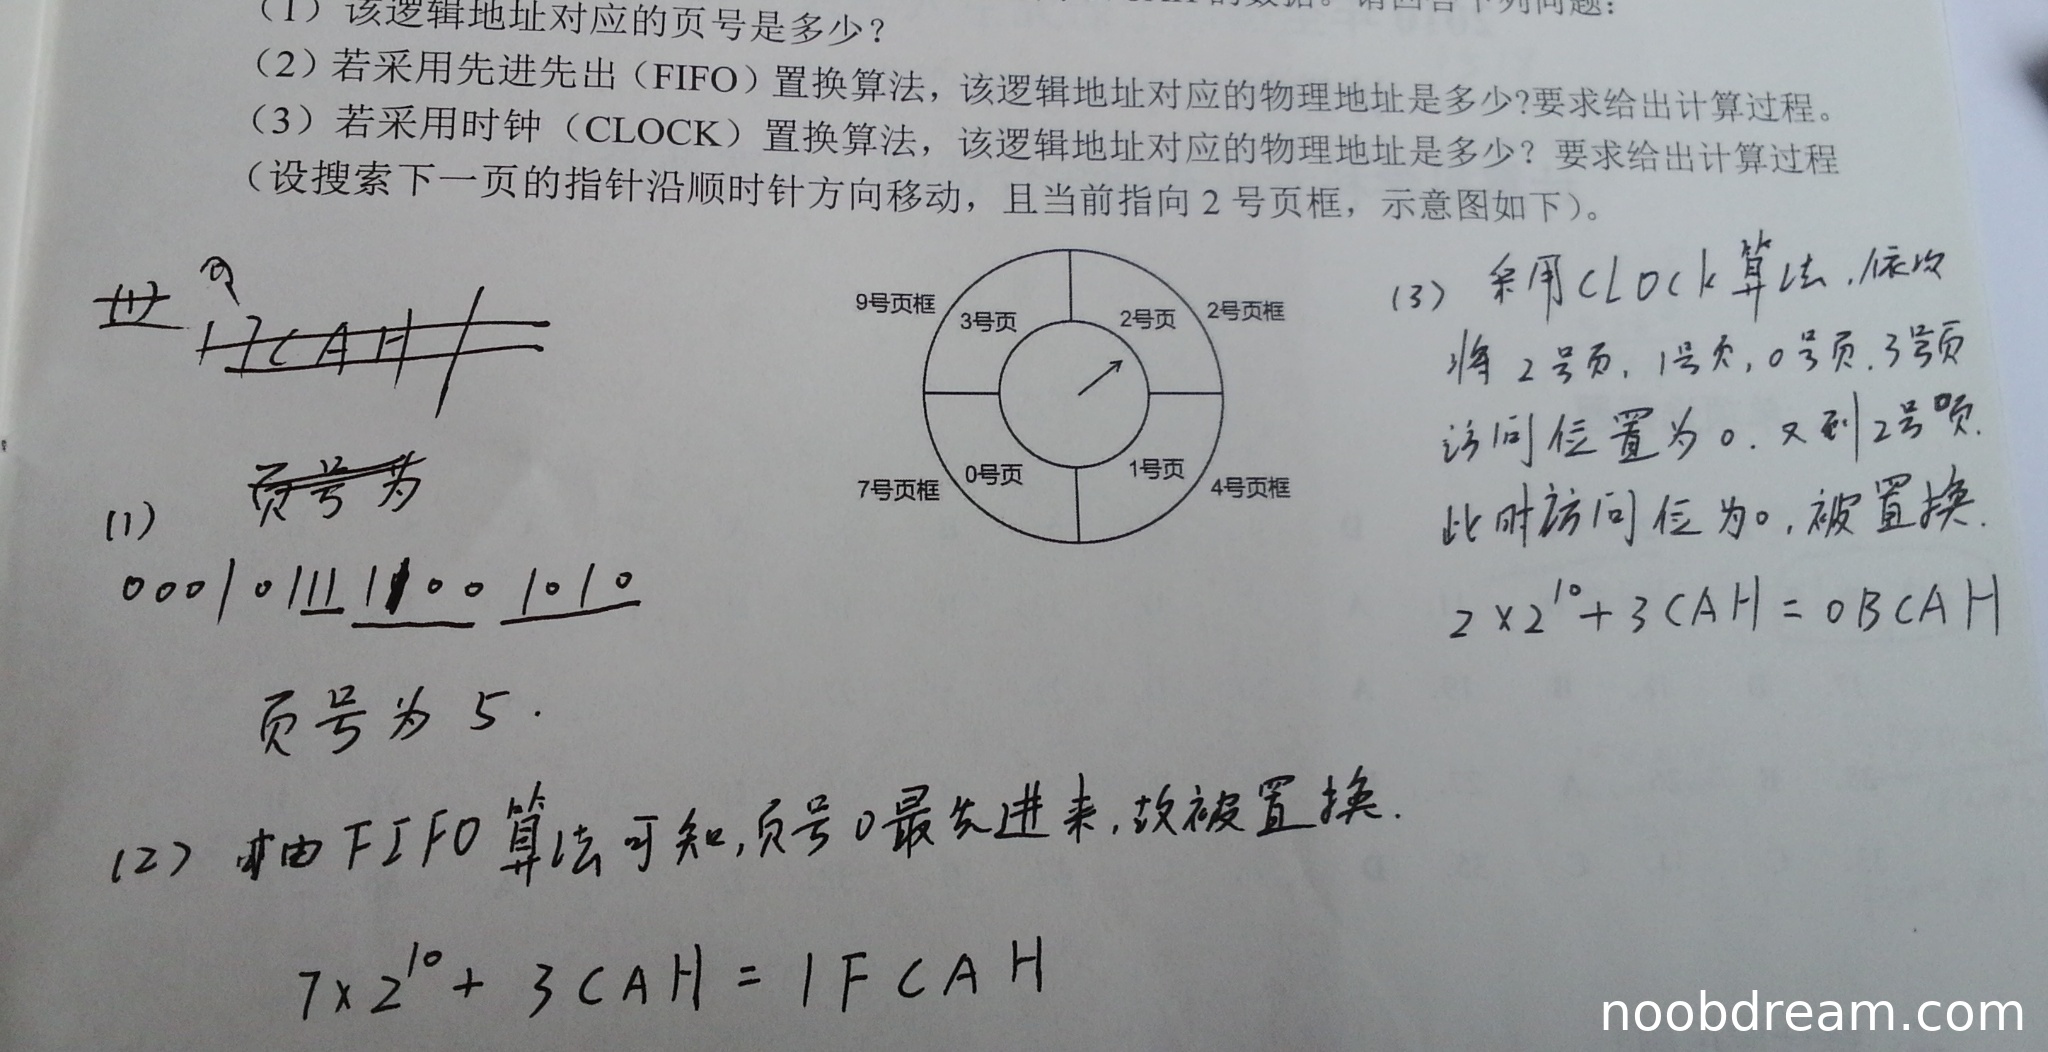 (1)该逻辑地址对应的页号是多少?
(2)若采用先进先出(FIFO)置换算法,该逻辑地址对应的物理地址是多少?要求给出计算过程。
(3)若采用时钟(CLOCK)置换算法,该逻辑地址对应的物理地址是多少?要求给出计算过程
(设搜索下一页的指针沿顺时针方向移动,且当前指向 2 号页框,示意图如下)。
17CAH
9号页框
3号页
2号页
2号页框
7号页框
0号页
1号页
4号页框
(1)
页号为
0001 0111 1100 1010
页号为 5.
(2) 由FIFO算法可知,页号0最先进来,故被置换.
7×2¹⁰+ 3CAH = 1FCAH
(3) 采用CLOCK算法,依次
将2号页,1号页,0号页,3号页
访问位置为0.又到2号页.
此时访问位为0,被置换.
2×2¹⁰+3CAH=0BCAH
noobdream.com